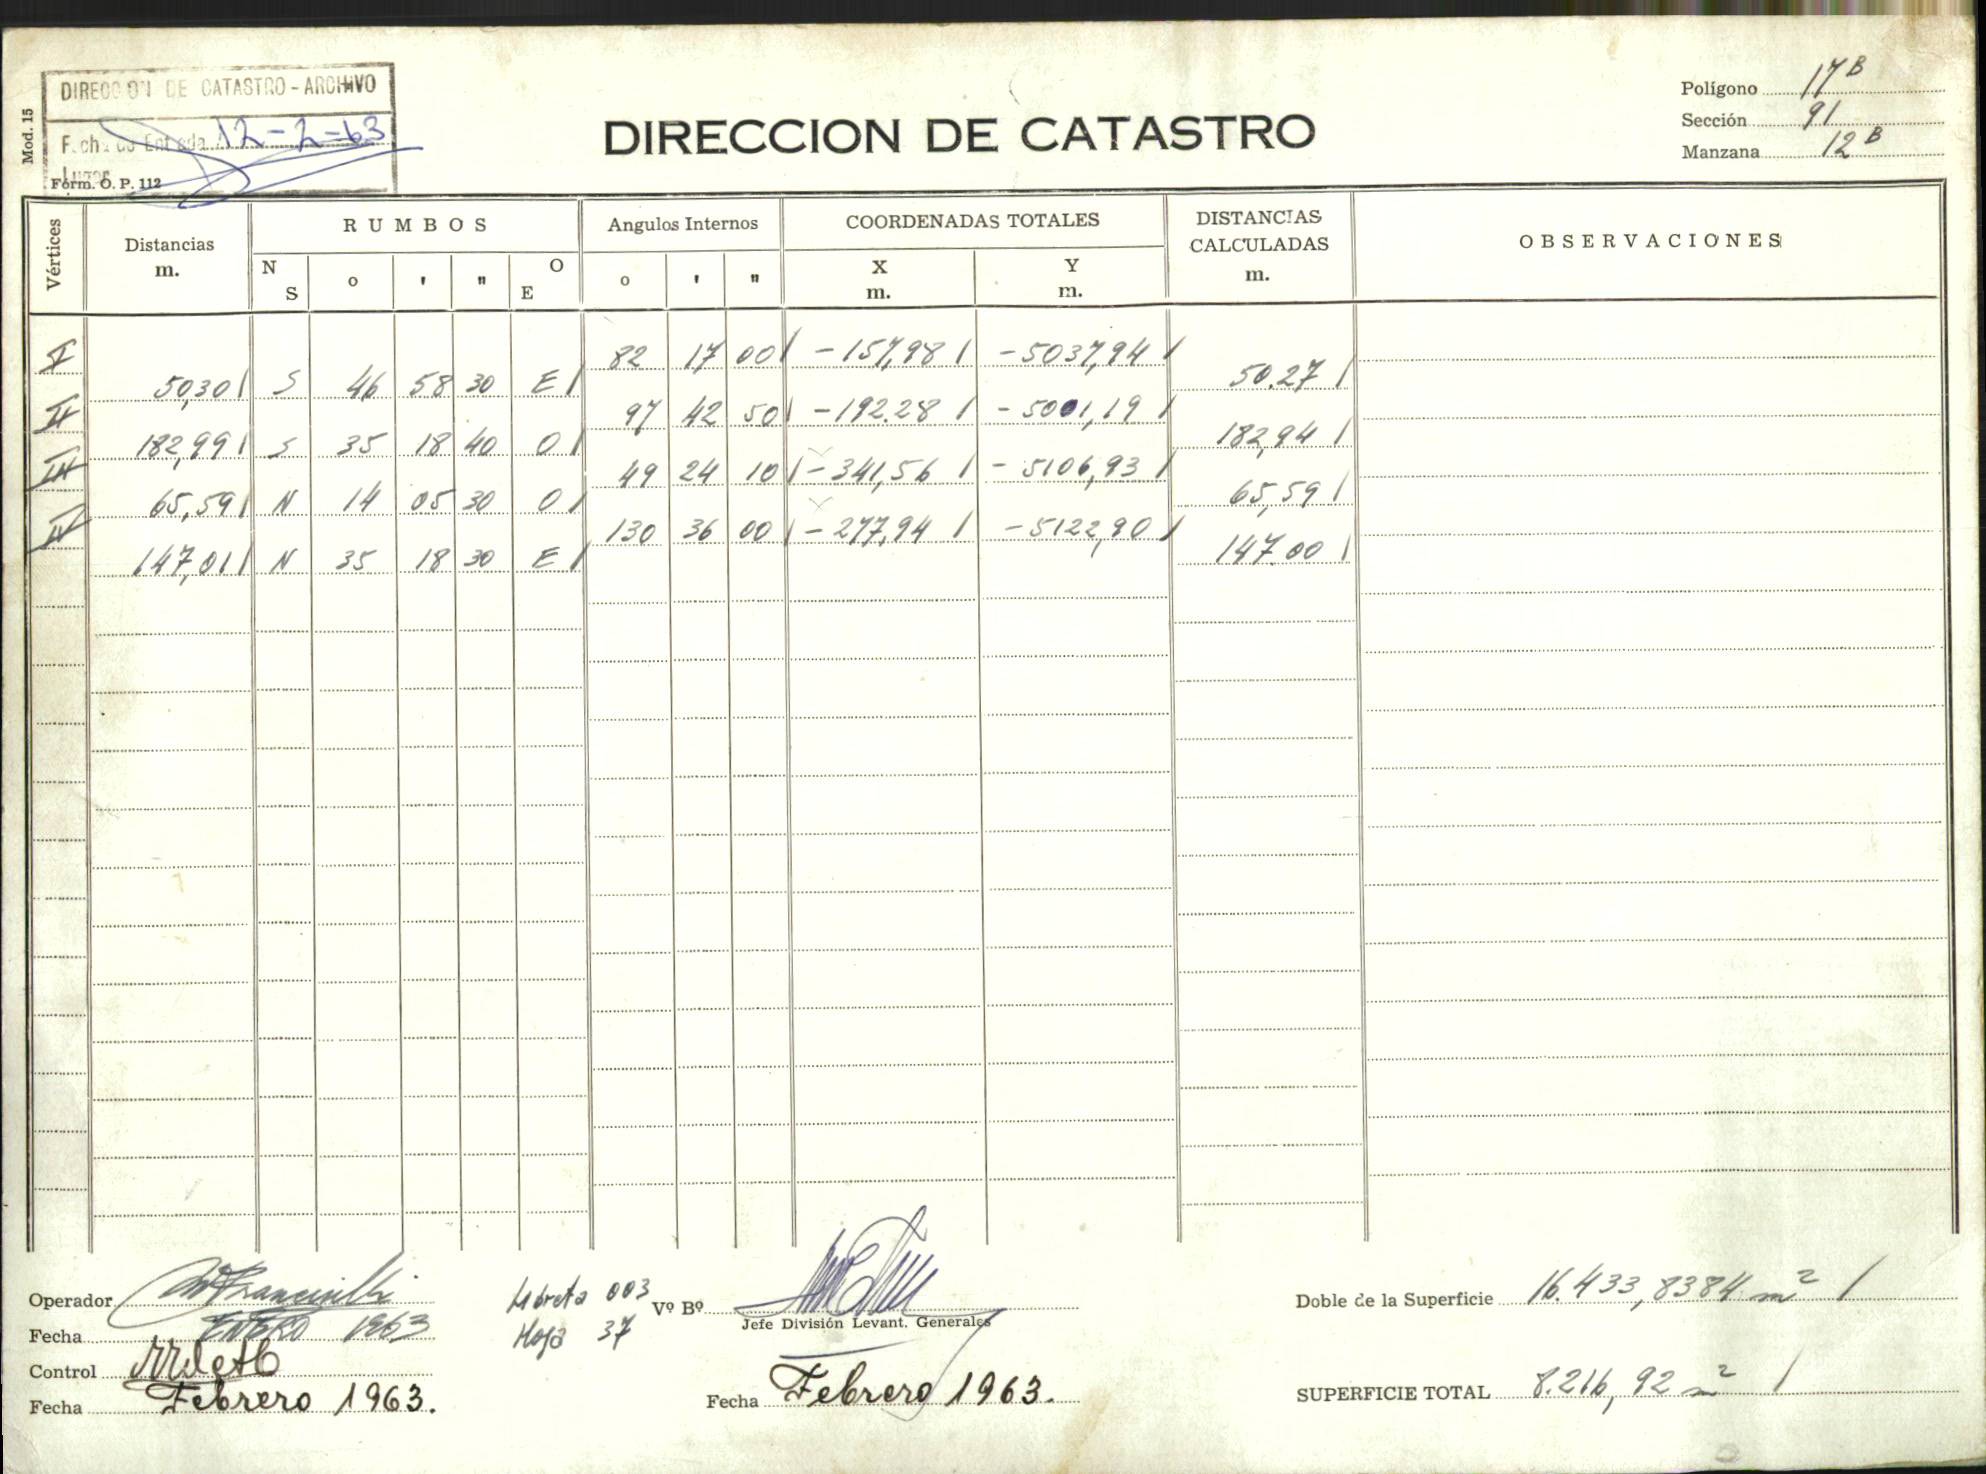 DIRECCION DE CATASTRO - ARCHIVO
Fecha de Entrada 12-2-63
Mod. 15
Form. O. P. 112
DIRECCION DE CATASTRO
Polígono 17 B
Sección 91
Manzana 12 B
Vértices
Distancias m.
RUMBOS
N S o ' " O E
Angulos Internos
o ' "
COORDENADAS TOTALES
X m. Y m.
DISTANCIAS CALCULADAS m.
OBSERVACIONES
I 82 17 00 -157,98 -5037,94
50,30 S 46 58 30 E 50.27
II 97 42 50 -192.28 -5001,19
182,99 S 35 18 40 O 182,94
III 49 24 10 -341,56 -5106,93
65,59 N 14 05 30 O 65,59
IV 130 36 00 -277,94 -5122,90
147,01 N 35 18 30 E 147.00
Operador
Fecha ENERO 1963
Control
Fecha Febrero 1963.
Libreta 003
Hoja 37
Vº Bº
Jefe División Levant. Generales
Fecha Febrero 1963.
Doble de la Superficie 16.433,8384 m²
SUPERFICIE TOTAL 8.216,92 m²